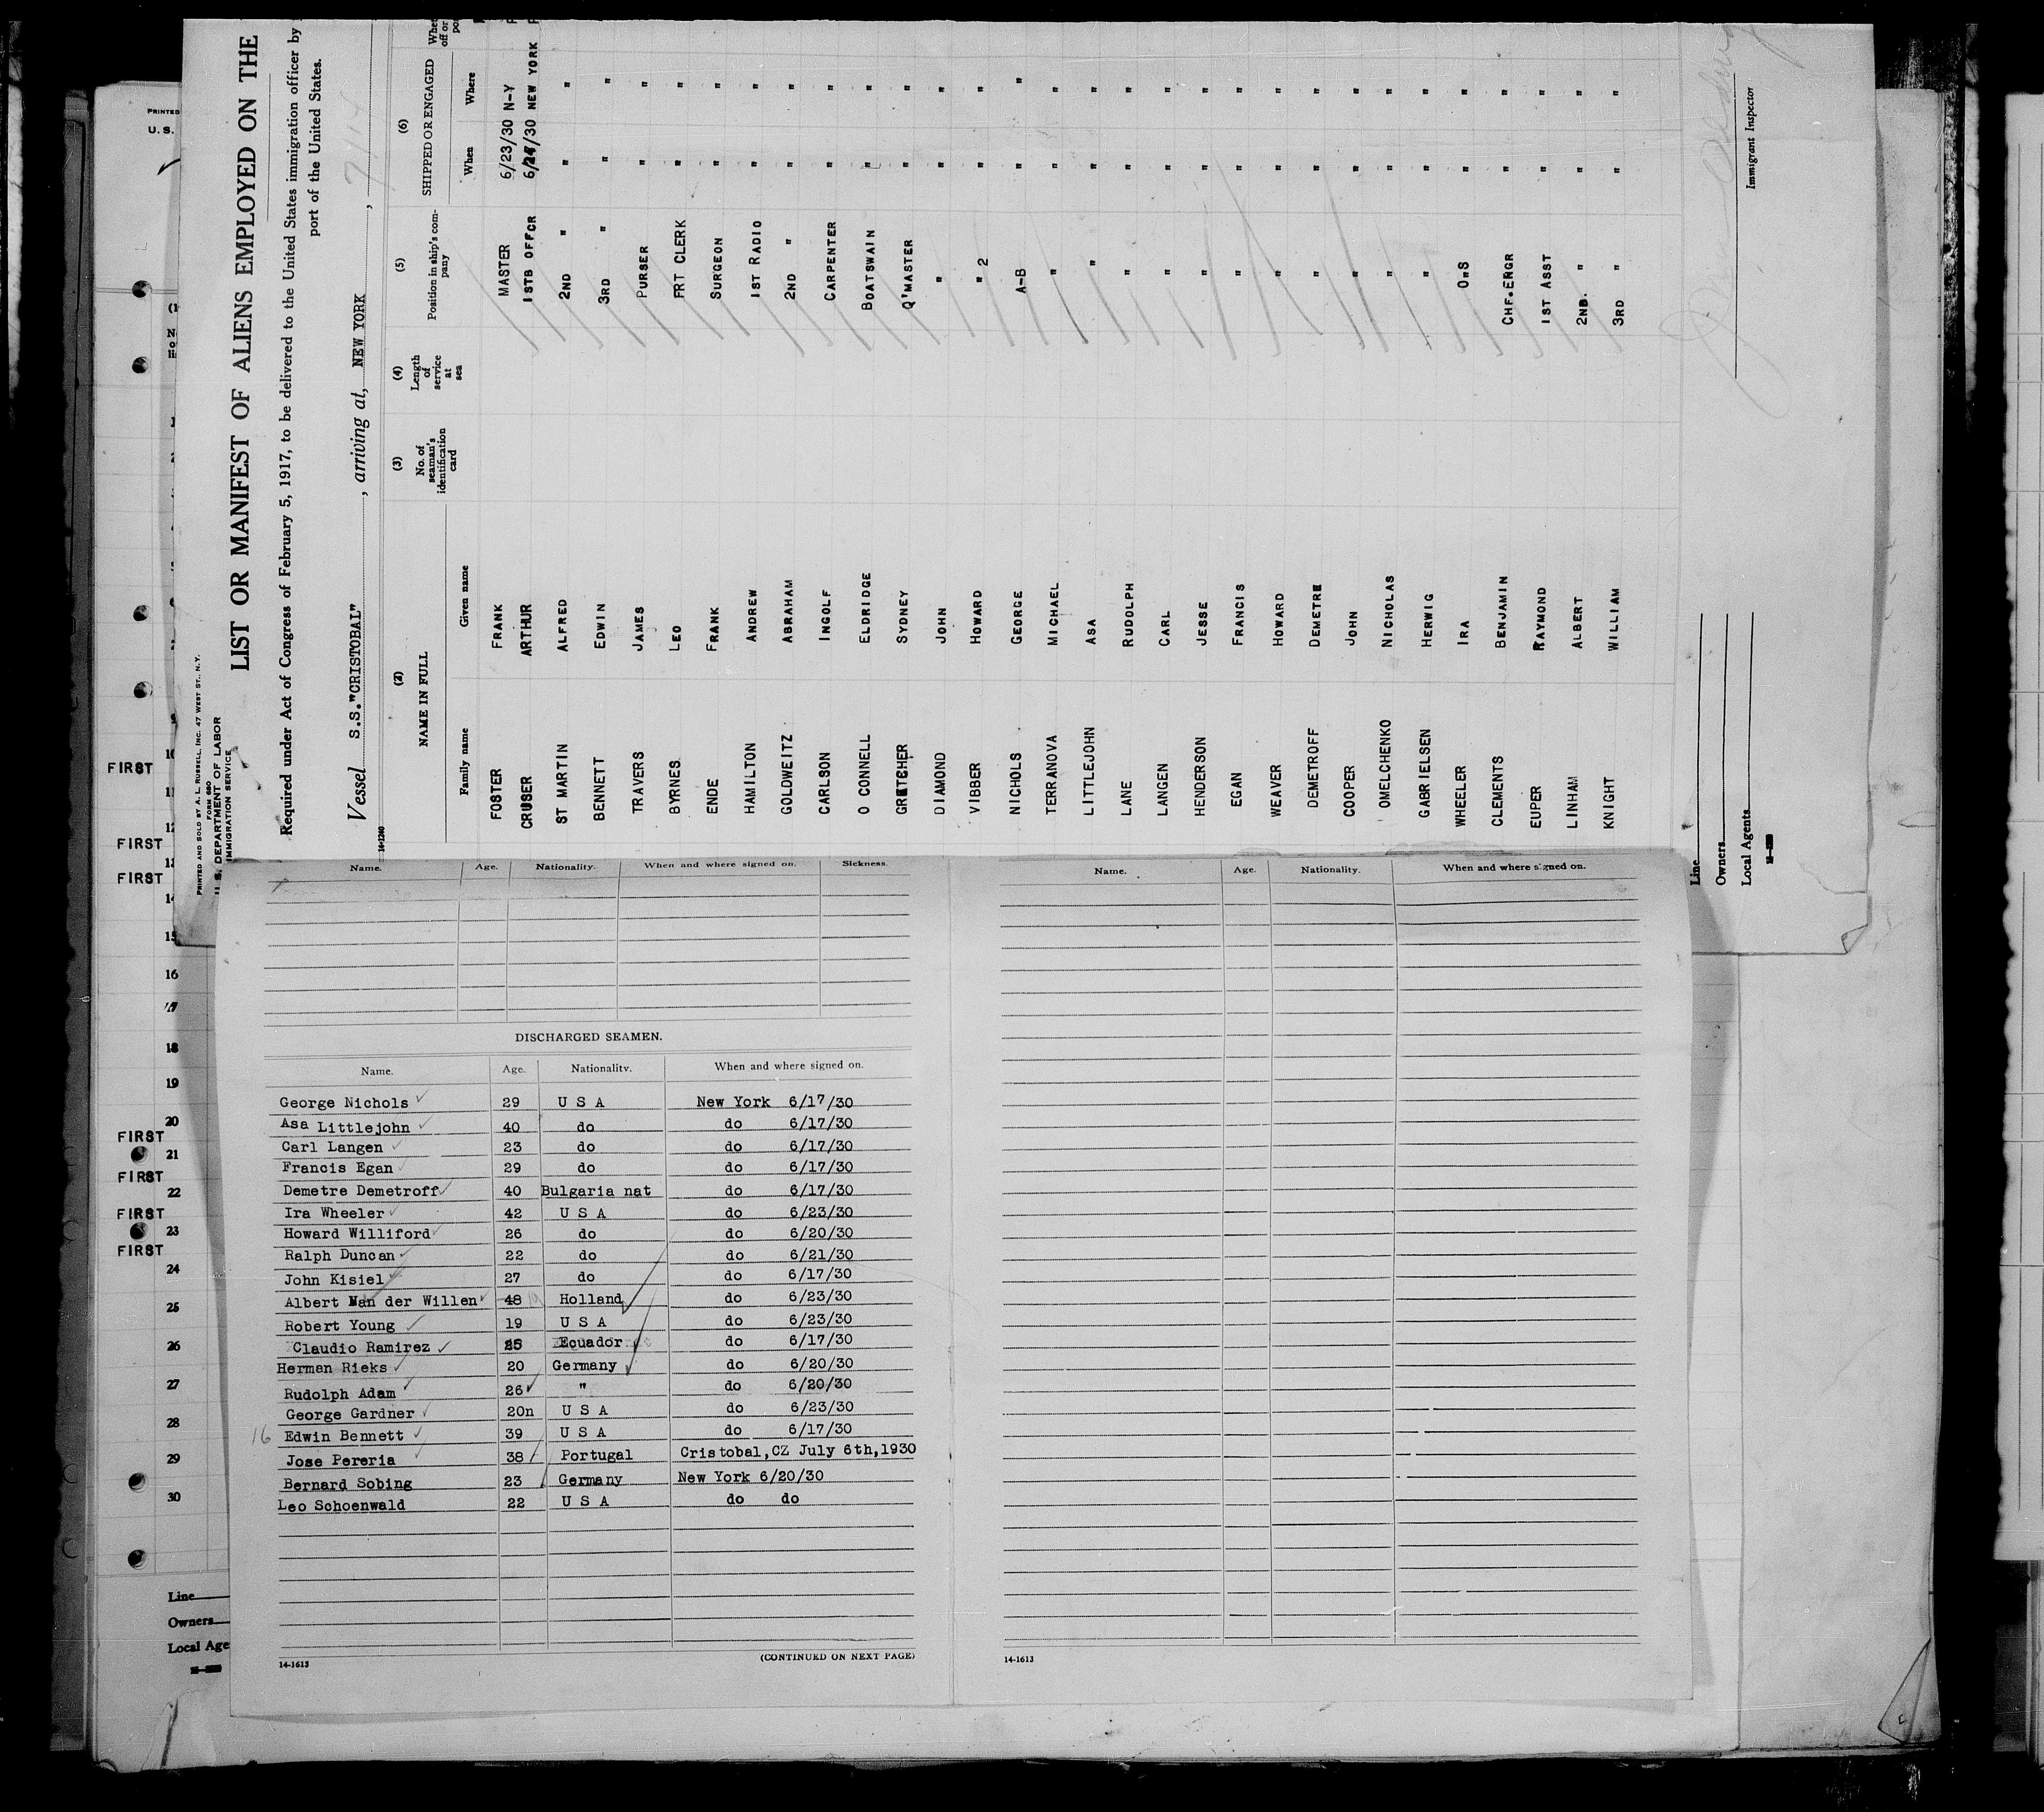 PRINTED AND SOLD BY A. L. RUSSELL, INC. 47 WEST ST., N.Y.
FORM 680
U. S. DEPARTMENT OF LABOR
IMMIGRATION SERVICE
LIST OR MANIFEST OF ALIENS EMPLOYED ON THE
Required under Act of Congress of February 5, 1917, to be delivered to the United States immigration officer by
port of the United States.
Vessel S.S."CRISTOBAL", arriving at, NEW YORK,
14-1240
(2) (3) (4) (5) (6)
NAME IN FULL No. of seaman's identification card Length of service at sea Position in ship's company SHIPPED OR ENGAGED
Family name Given name When Where
FOSTER FRANK MASTER 6/23/30 N-Y
CRUSER ARTHUR 1STB OFFCR 6/24/30 NEW YORK
ST MARTIN ALFRED 2ND " " "
BENNETT EDWIN 3RD " " "
TRAVERS JAMES PURSER " "
BYRNES LEO FRT CLERK " "
ENDE FRANK SURGEON " "
HAMILTON ANDREW 1ST RADIO " "
GOLDWEITZ ABRAHAM 2ND " " "
CARLSON INGOLF CARPENTER " "
O CONNELL ELDRIDGE BOATSWAIN " "
GRETCHER SYDNEY Q'MASTER " "
DIAMOND JOHN " " "
VIBBER HOWARD " 2 " "
NICHOLS GEORGE A-B " "
TERRANOVA MICHAEL " " "
LITTLEJOHN ASA " " "
LANE RUDOLPH " " "
LANGEN CARL " " "
HENDERSON JESSE " " "
EGAN FRANCIS " " "
WEAVER HOWARD " " "
DEMETROFF DEMETRE " " "
COOPER JOHN " " "
OMELCHENKO NICHOLAS " " "
GABRIELSEN HERWIG " " "
WHEELER IRA O"S " "
CLEMENTS BENJAMIN CHF.ENGR " "
EUPER RAYMOND 1ST ASST " "
LINHAM ALBERT 2ND. " " "
KNIGHT WILLIAM 3RD " " "
Line
Owners
Local Agents
Immigrant Inspector
PRINTED
U. S.
FIRST
FIRST
FIRST
FIRST
FIRST
FIRST
FIRST
10
11
12
13
14
15
16
17
18
19
20
21
22
23
24
25
26
27
28
29
30
Line
Owners
Local Age
Name. Age. Nationality. When and where signed on. Sickness.
DISCHARGED SEAMEN.
Name. Age. Nationality. When and where signed on.
George Nichols 29 U S A New York 6/17/30
Asa Littlejohn 40 do do 6/17/30
Carl Langen 23 do do 6/17/30
Francis Egan 29 do do 6/17/30
Demetre Demetroff 40 Bulgaria nat do 6/17/30
Ira Wheeler 42 U S A do 6/23/30
Howard Williford 26 do do 6/20/30
Ralph Duncan 22 do do 6/21/30
John Kisiel 27 do do 6/17/30
Albert Van der Willen 48 Holland do 6/23/30
Robert Young 19 U S A do 6/23/30
Claudio Ramirez Ecuador do 6/17/30
Herman Rieks 20 Germany do 6/20/30
Rudolph Adam 26 " do 6/20/30
George Gardner 20n U S A do 6/23/30
16 Edwin Bennett 39 U S A do 6/17/30
Jose Pereria 38 Portugal Cristobal,CZ July 6th,1930
Bernard Sobing 23 Germany New York 6/20/30
Leo Schoenwald 22 U S A do do
14-1613 (CONTINUED ON NEXT PAGE)
Name. Age. Nationality. When and where signed on.
14-1613